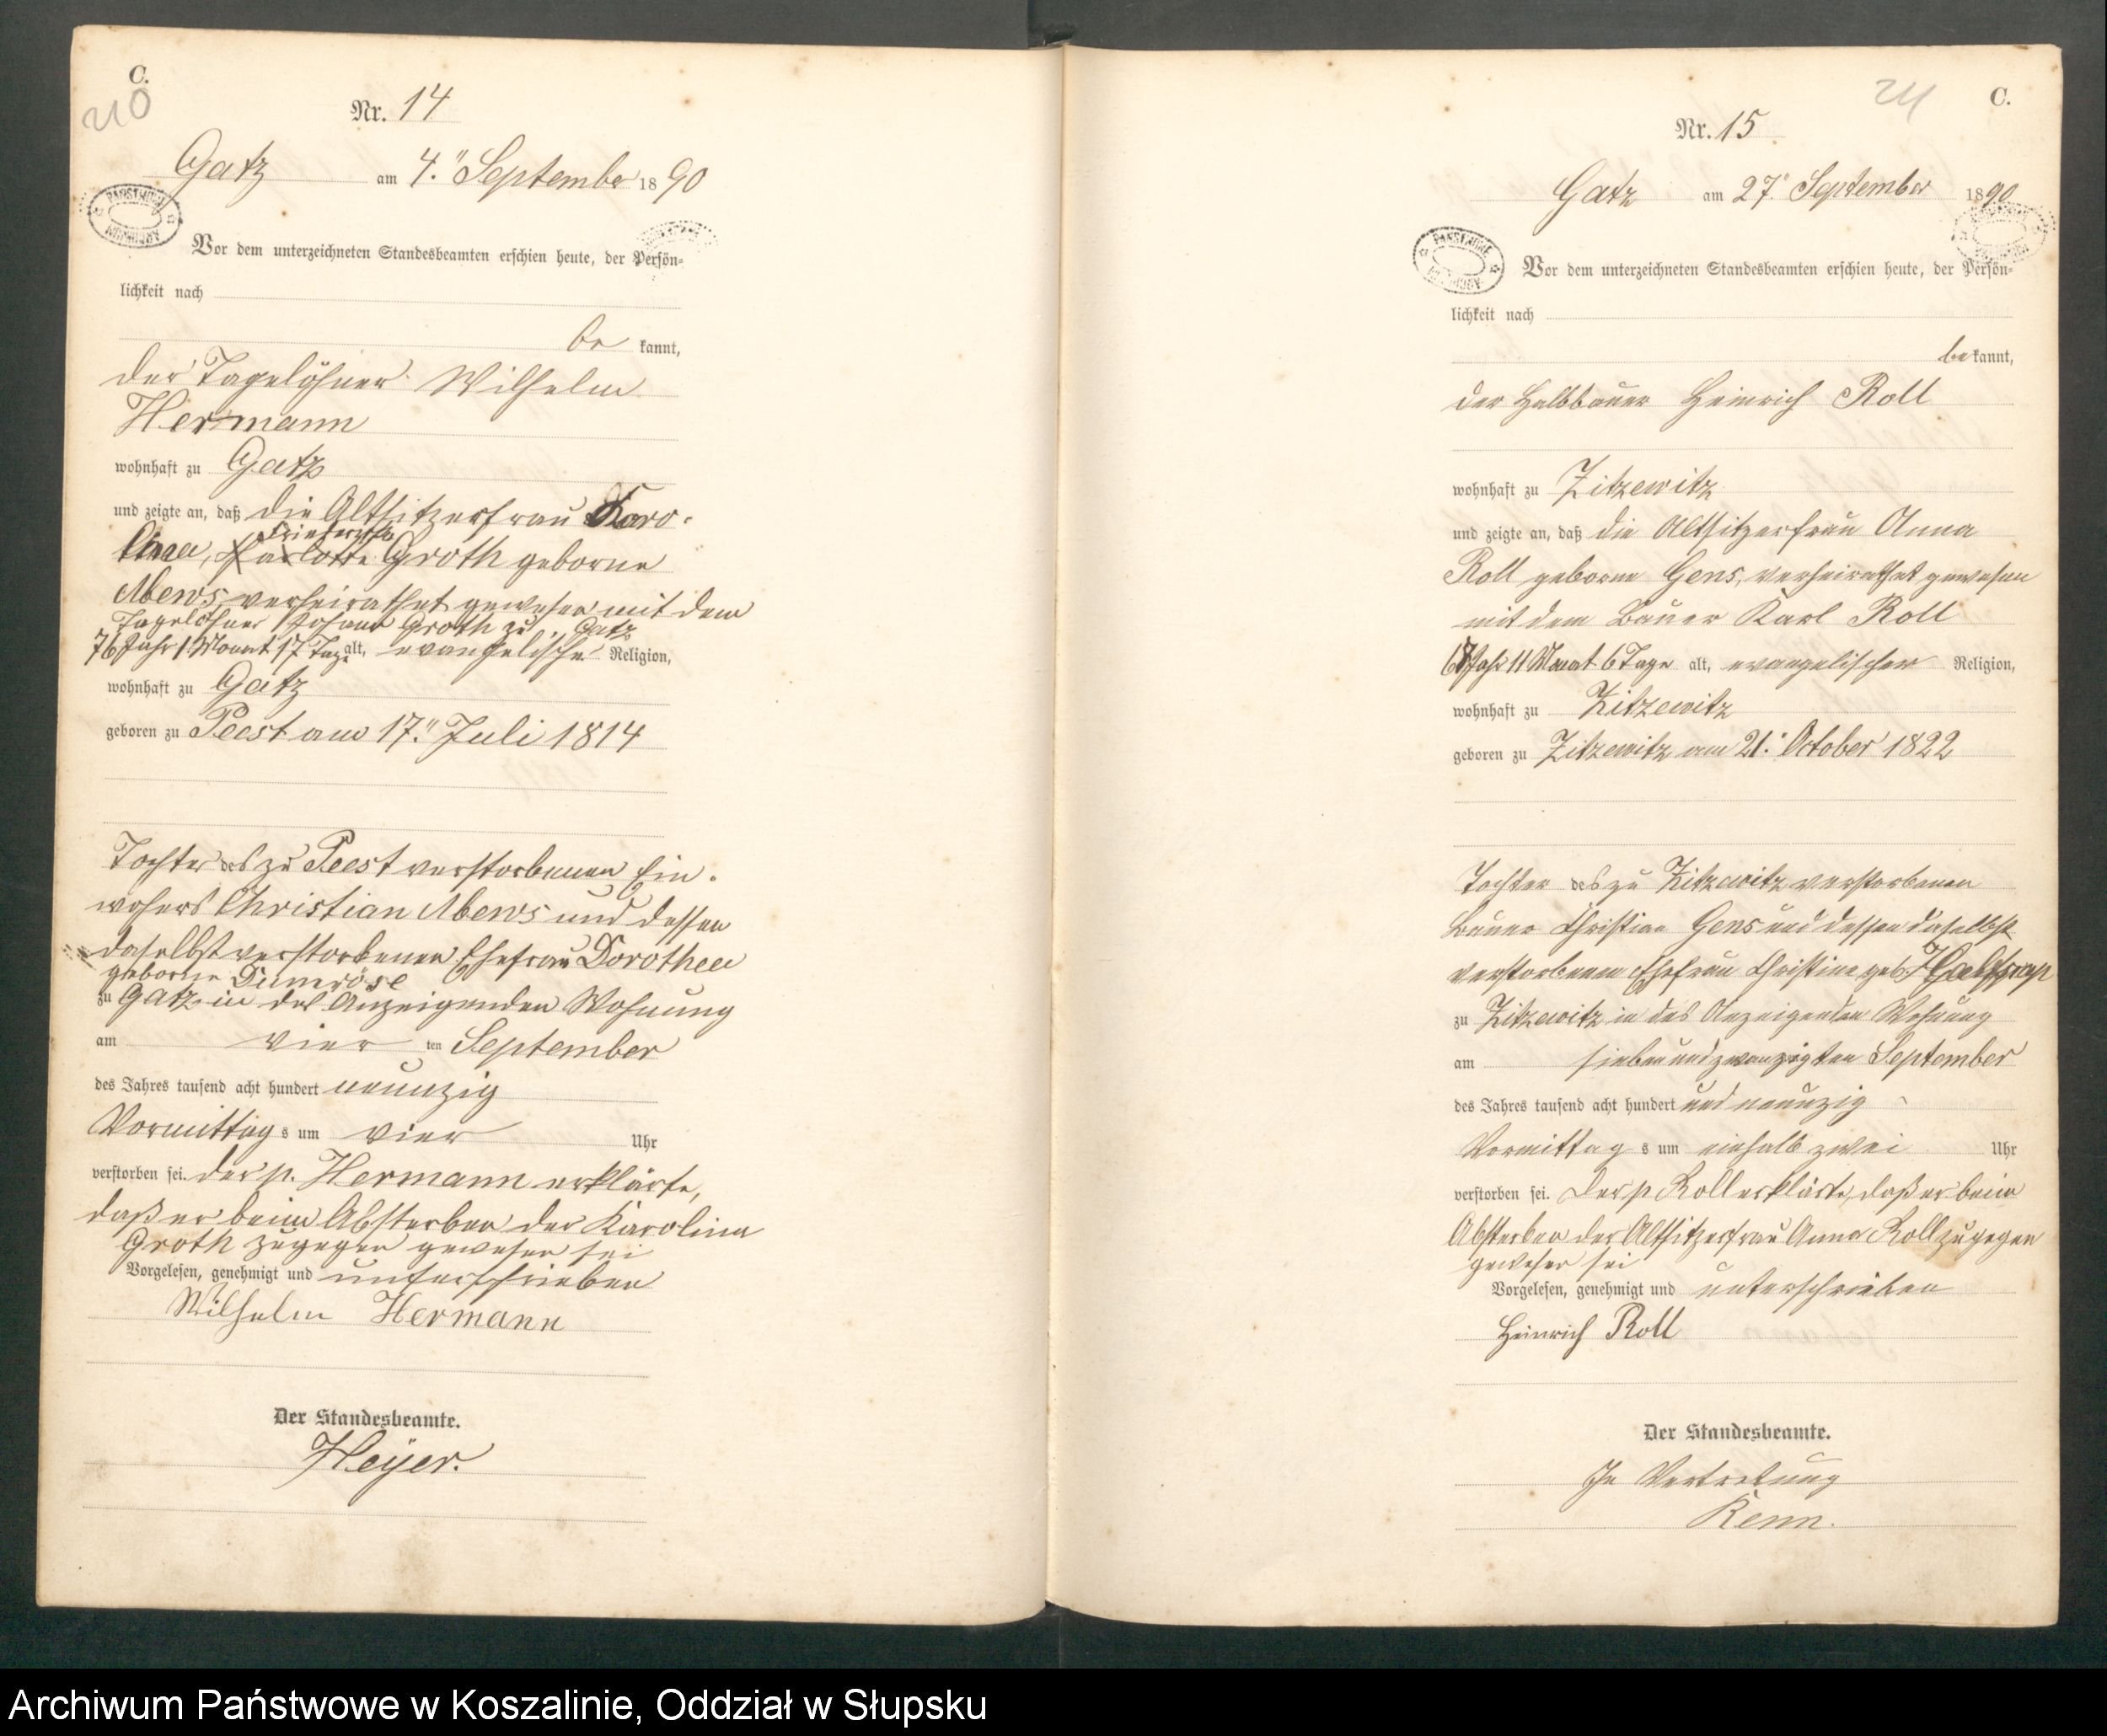 C.
210
Nr. 14
Gatz am 4." September 1890
Vor dem unterzeichneten Standesbeamten erschien heute, der Persön=
lichkeit nach
be kannt,
der Tagelöhner Wilhelm
Hermann
wohnhaft zu Gatz
und zeigte an, daß die Altsitzerfrau Karo-
Friederike
line, Charlotte Groth geborne
Abews, verheirathet gewesen mit dem
Tagelöhner Johann Groth zu Gatz
76 Jahr 1 Monat 17 Tage alt, evangelischer Religion,
wohnhaft zu Gatz
geboren zu Peest am 17." Juli 1814
Tochter des zu Peest verstorbenen Ein-
wohners Christian Abews und dessen
daselbst verstorbenen Ehefrau Dorothea
geborne Dumröse
zu Gatz in des Anzeigenden Wohnung
am vier ten September
des Jahres tausend acht hundert neunzig
Vormittag s um vier Uhr
verstorben sei. der p. Hermann erklärte,
daß er beim Absterben der Karoline
Groth zugegen gewesen sei
Vorgelesen, genehmigt und unterschrieben
Wilhelm Hermann
Der Standesbeamte.
Heyer.
C.
Nr. 15
Gatz am 27." September 1890
Vor dem unterzeichneten Standesbeamten erschien heute, der Persön=
lichkeit nach
be kannt,
der Halbbauer Heinrich Roll
wohnhaft zu Zitzewitz
und zeigte an, daß die Altsitzerfrau Anna
Roll geborne Gens, verheirathet gewesen
mit dem Bauer Karl Roll
67 Jahr 11 Monat 6 Tage alt, evangelischer Religion,
wohnhaft zu Zitzewitz
geboren zu Zitzewitz am 21." October 1822
Tochter des zu Zitzewitz verstorbenen
Bauer Christian Gens und dessen daselbst
verstorbenen Ehefrau Christine geb.
zu Zitzewitz in des Anzeigenden Wohnung
am siebenundzwanzigsten September
des Jahres tausend acht hundert und neunzig
Vormittag s um einhalb zwei Uhr
verstorben sei. Der p Roll erklärte, daß er beim
Absterben der Altsitzerfrau Anna Roll zugegen
gewesen sei
Vorgelesen, genehmigt und unterschrieben
Heinrich Roll
Der Standesbeamte.
In Vertretung
Kenn.
Archiwum Państwowe w Koszalinie, Oddział w Słupsku